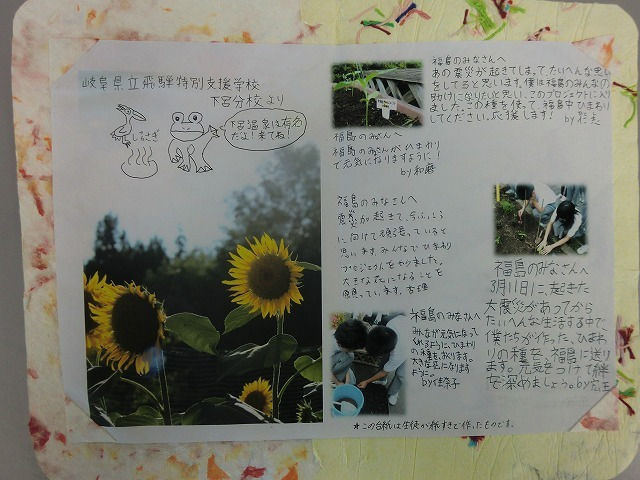 岐阜県立飛騨特別支援学校
下呂分校より
しらさぎ
下呂温泉は有名
だよ!来てね!
福島のみなさんへ
福島のみなさんがひまわり
で元気になりますように!
by 和磨
福島のみなさんへ
震災が起きて、今、ふっこう
に向けて頑張っていると
思います。みんなでひまわり
プロジェクトをやりました。
大きな花になることを
願っています。
福島のみなさんへ
あの震災が起きてしまって、たいへんな思い
をしてると思います。僕は福島のみんなの
助けになりたいと思い、このプロジェクトに入り
ました。この種を使って、福島中ひまわり
にしてください。応援します! by
福島のみなさんへ
3月11日に、起きた
大震災があってから
たいへんな生活する中で、
僕たちが作った、ひまわ
りの種を、福島に送り
ます。元気をつけて絆
を深めましょう。by
福島のみなさんへ
みんなが元気になって
くれるように、ひまわり
の種を、おくります。
大きな花になります
ように。
by 佳奈子
★この台紙は生徒が紙すきで作ったものです。